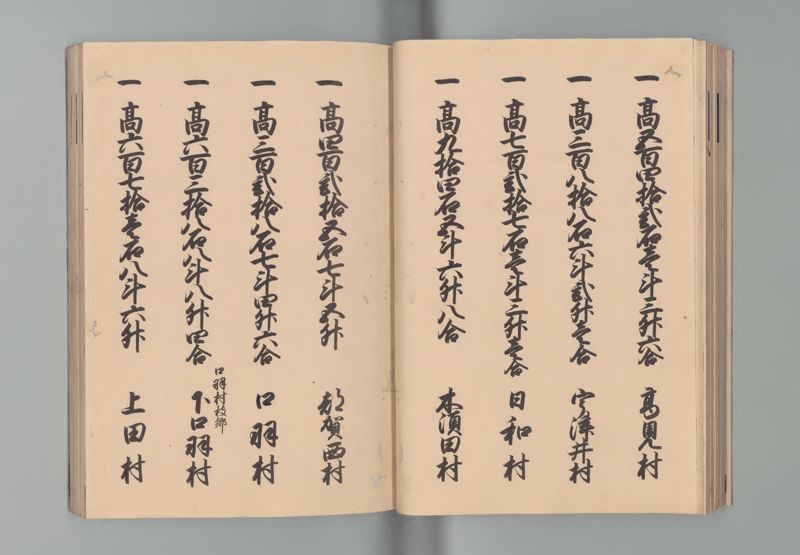 一 高五百四拾弐石壱斗三升六合 高見村
一 高三百八拾八石六斗弐升壱合 宇津井村
一 高七百弐拾七石壱斗三升壱合 日和村
一 高九拾四石五斗六升八合 木須田村
一 高四百弐拾五石七斗五升 都賀西村
一 高三百弐拾八石七斗四升六合 口羽村
口羽村枝郷
一 高六百三拾八石八斗八升四合 下口羽村
一 高六百七拾壱石八斗六升 上田村